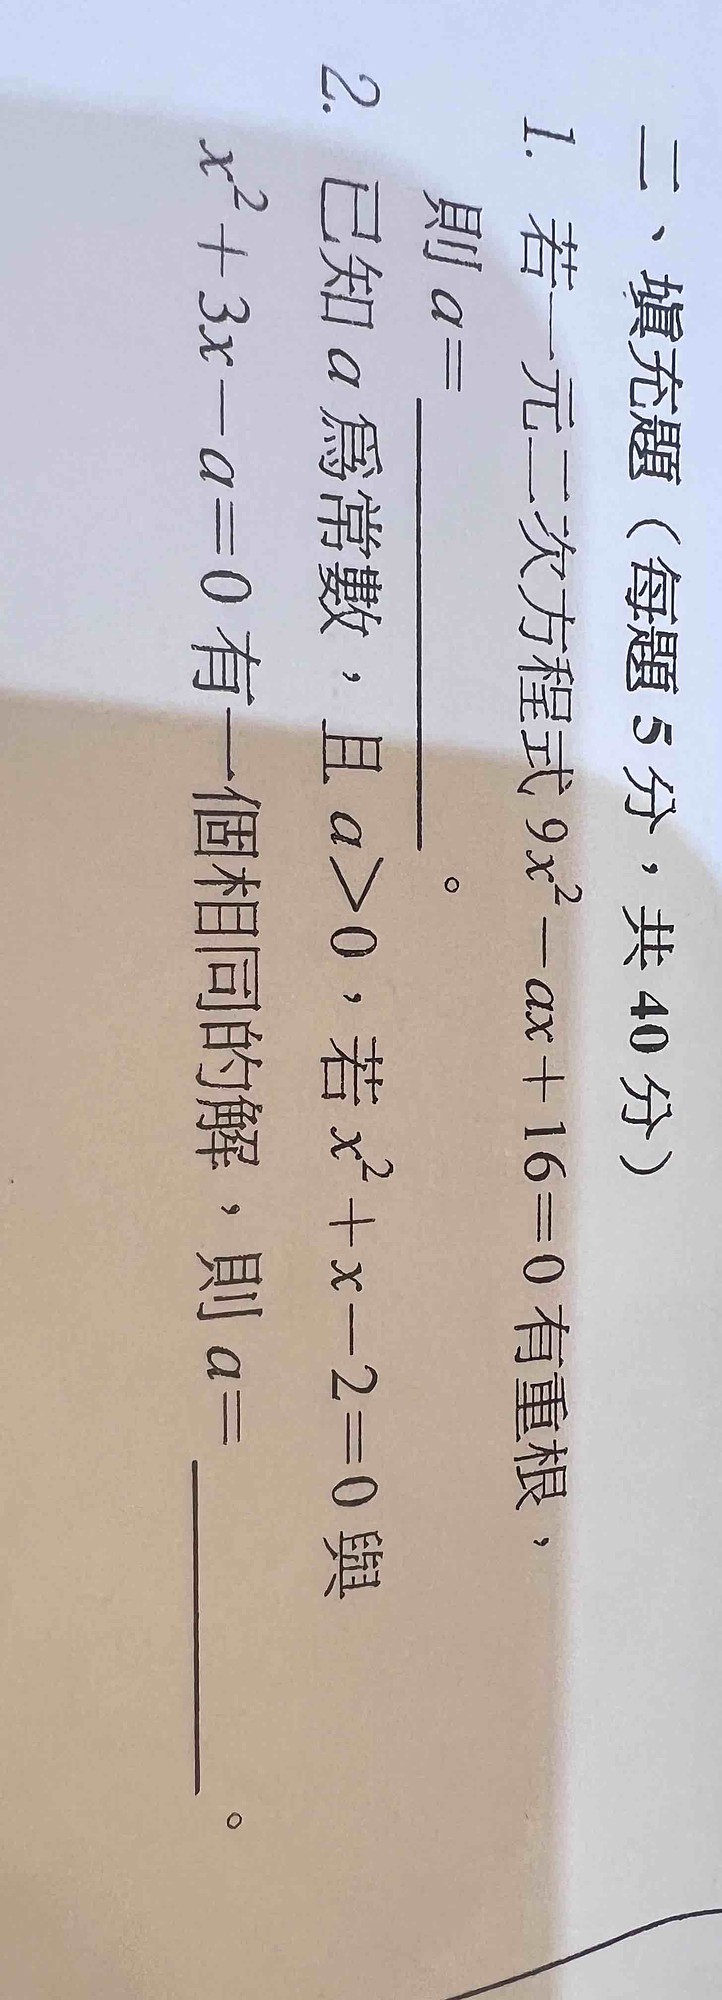 二、填充題（每題 5 分，共 40 分）
1. 若一元二次方程式 9x²－ax＋16＝0 有重根，
則 a＝＿＿＿＿＿＿。
2. 已知 a 為常數，且 a＞0，若 x²＋x－2＝0 與
x²＋3x－a＝0 有一個相同的解，則 a＝＿＿＿＿＿＿。